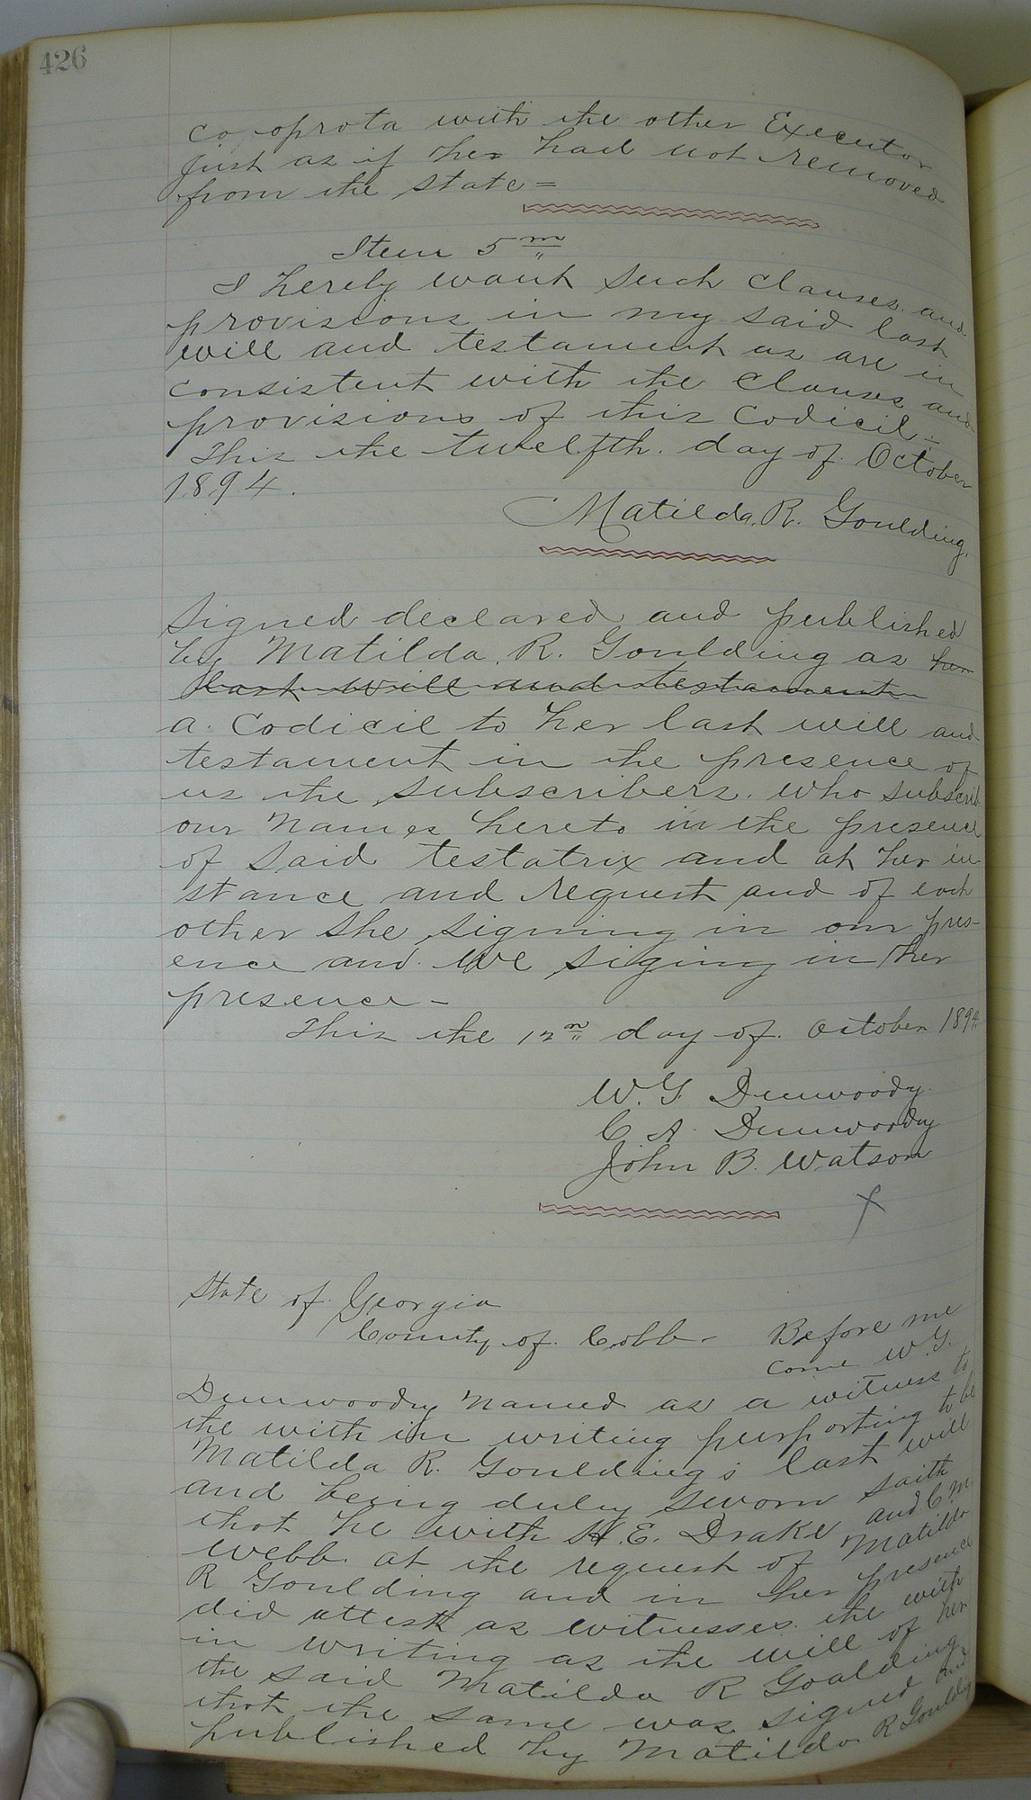 426
Co-oprota with the other Executor
just as if her had not removed
from the state =
Item 5 m
I hereby want such clauses and
provisions in my said last
will and testament as are in
consistent with the clauses and
provisions of this Codicil -
This the twelfth. day of October
1894.
Matilda. R. Goulding.
Signed declared and published
by Matilda. R. Goulding as her
last will and testament
a Codicil to her last will and
testament in the presence of
us the subscribers. who subscrib
our names hereto in the presence
of said testatrix and at her in
stance and request and of each
other she signing in our pres-
ence and we siging in her
presence -
This the 12 day of October 1894
W. G Dunwoody
C A Dunwoody
John B. Watson
State of Georgia
County of Cobb - Before me
come W. G.
Dunwoody named as a witness to
the with in writing purporting to be
Matilda R. Goulding's last will
and being duly sworn saith
that he with H. E. Drake and C. M.
Webb at the request of Matilda
R Goulding and in her presence
did attest as witnesses the with
in writing as the will of her
the said Matilda R Goalding
that the same was signed and
published by Matilda R Goulding